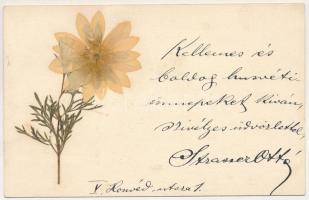 Kellemes és
boldog husvéti
ünnepeket kíván,
Szívélyes üdvözlettel,
Strasser Ottó
V. Honvéd-utcza 1